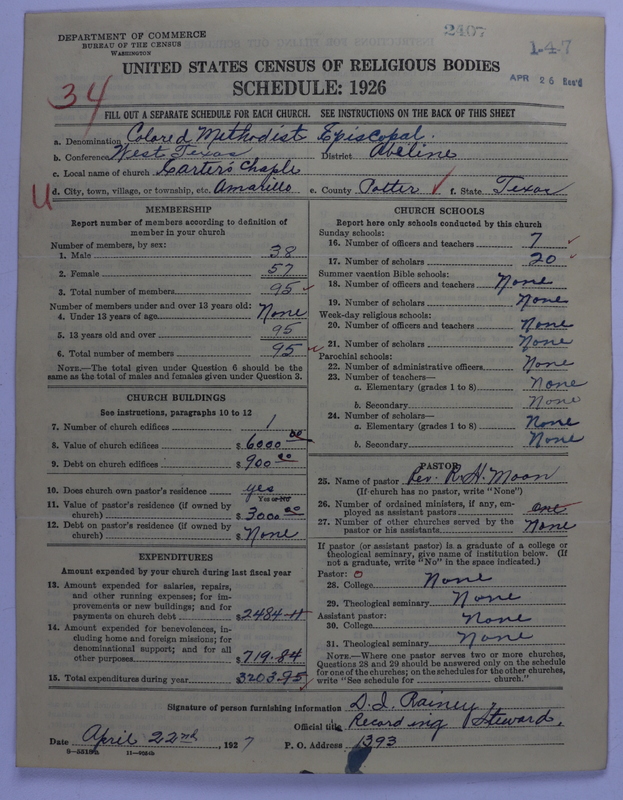 DEPARTMENT OF COMMERCE
BUREAU OF THE CENSUS
WASHINGTON
2407
1-4-7
APR 26 Rec'd
UNITED STATES CENSUS OF RELIGIOUS BODIES
SCHEDULE: 1926
34
FILL OUT A SEPARATE SCHEDULE FOR EACH CHURCH. SEE INSTRUCTIONS ON THE BACK OF THIS SHEET
a. Denomination Colored Methodist Episcopal.
b. Conference West Texas District Abeline
c. Local name of church Carter's Chaple
d. City, town, village, or township, etc. Amarillo e. County Potter f. State Texas
MEMBERSHIP
Report number of members according to definition of
member in your church
Number of members, by sex:
1. Male 38
2. Female 57
3. Total number of members 95
Number of members under and over 13 years old:
4. Under 13 years of age None
5. 13 years old and over 95
6. Total number of members 95
NOTE.—The total given under Question 6 should be the
same as the total of males and females given under Question 3.
CHURCH BUILDINGS
See instructions, paragraphs 10 to 12
7. Number of church edifices 1
8. Value of church edifices $ 6000 00
9. Debt on church edifices $ 900 00
10. Does church own pastor's residence yes
Yes or No
11. Value of pastor's residence (if owned by
church) $ 3000 00
12. Debt on pastor's residence (if owned by
church) $ None
EXPENDITURES
Amount expended by church during last fiscal year
13. Amount expended for salaries, repairs,
and other running expenses; for im-
provements or new buildings; and for
payments on church debt $ 2484-11
14. Amount expended for benevolences, in-
cluding home and foreign missions; for
denominational support; and for all
other purposes $ 719.84
15. Total expenditures during year 3203.95
CHURCH SCHOOLS
Report here only schools conducted by this church
Sunday schools:
16. Number of officers and teachers 7
17. Number of scholars 20
Summer vacation Bible schools:
18. Number of officers and teachers None
19. Number of scholars None
Week-day religious schools:
20. Number of officers and teachers None
21. Number of scholars None
Parochial schools:
22. Number of administrative officers None
23. Number of teachers—
a. Elementary (grades 1 to 8) None
b. Secondary None
24. Number of scholars—
a. Elementary (grades 1 to 8) None
b. Secondary None
PASTOR
25. Name of pastor Rev. R. H. Moon
(If church has no pastor, write "None")
26. Number of ordained ministers, if any, em-
ployed as assistant pastors one
27. Number of other churches served by the
pastor or his assistants None
If pastor (or assistant pastor) is a graduate of a college or
theological seminary, give name of institution below. (If
not a graduate, write "No" in the space indicated.)
Pastor:
28. College None
29. Theological seminary None
Assistant pastor:
30. College None
31. Theological seminary None
NOTE.—Where one pastor serves two or more churches,
Questions 28 and 29 should be answered only on the schedule
for one of the churches; on the schedules for the other churches,
write "See schedule for church."
Signature of person furnishing information D. I. Rainey
Official title Recording Steward,
Date April 22nd, 1927 P. O. Address 1393